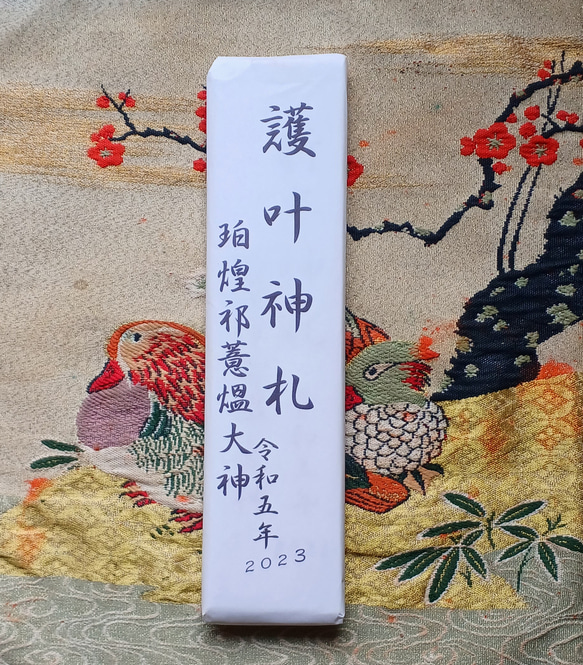 護叶神札
令和五年
2023
珀煌祁薏熅大神